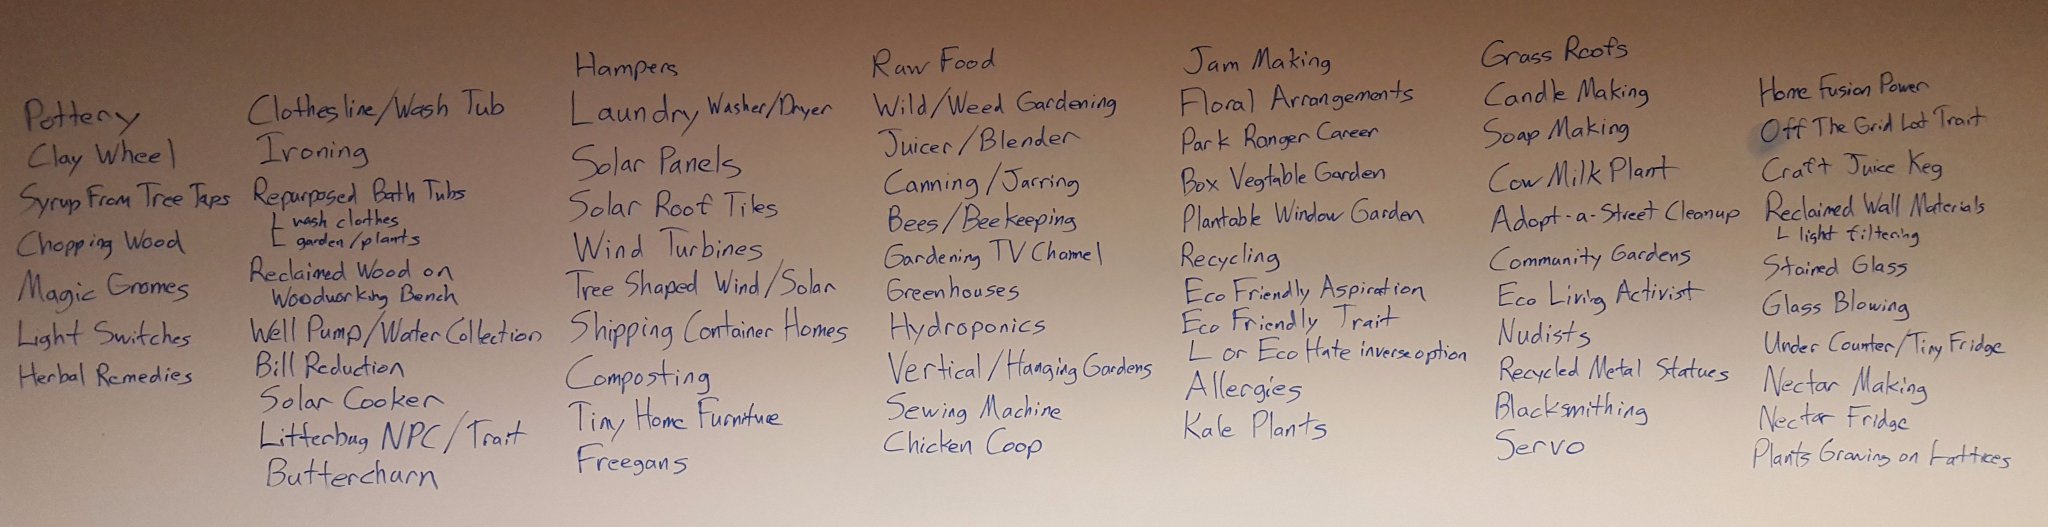 Pottery
Clay Wheel
Syrup From Tree Taps
Chopping Wood
Magic Gnomes
Light Switches
Herbal Remedies
Clothesline/Wash Tub
Ironing
Repurposed Bath Tubs
wash clothes
garden/plants
Reclaimed Wood on
Woodworking Bench
Well Pump/Water Collection
Bill Reduction
Solar Cooker
Litterbug NPC/Trait
Butterchurn
Hampers
Laundry Washer/Dryer
Solar Panels
Solar Roof Tiles
Wind Turbines
Tree Shaped Wind/Solar
Shipping Container Homes
Composting
Tiny Home Furniture
Freegans
Raw Food
Wild/Weed Gardening
Juicer/Blender
Canning/Jarring
Bees/Beekeeping
Gardening TV Channel
Greenhouses
Hydroponics
Vertical/Hanging Gardens
Sewing Machine
Chicken Coop
Jam Making
Floral Arrangements
Park Ranger Career
Box Vegtable Garden
Plantable Window Garden
Recycling
Eco Friendly Aspiration
Eco Friendly Trait
L or Eco Hate inverse option
Allergies
Kale Plants
Grass Roofs
Candle Making
Soap Making
Cow Milk Plant
Adopt-a-Street Cleanup
Community Gardens
Eco Living Activist
Nudists
Recycled Metal Statues
Blacksmithing
Servo
Home Fusion Power
Off The Grid Lot Trait
Craft Juice Keg
Reclaimed Wall Materials
L light filtering
Stained Glass
Glass Blowing
Under Counter/Tiny Fridge
Nectar Making
Nectar Fridge
Plants Growing on Lattices